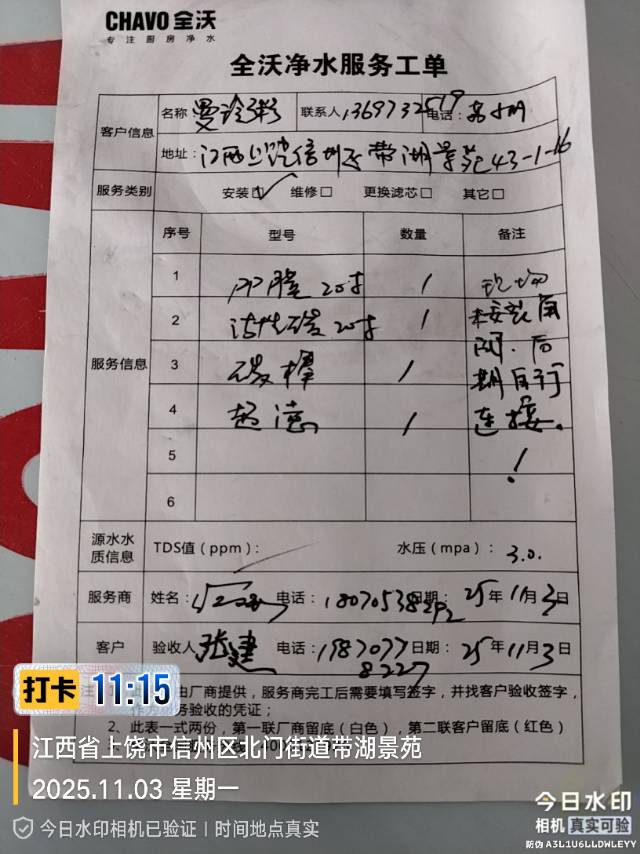 CHAVO 全沃
专注厨房净水
全沃净水服务工单
客户信息
名称 曼玲粥 联系人 电话:
地址: 江西上饶信州区带湖景苑43-1-16
服务类别 安装☑ 维修□ 更换滤芯□ 其它□
服务信息
序号 型号 数量 备注
1 20寸 1 现场
2 活性碳 20寸 1 未安装角
3 碳棒 1 阀.后
4 超滤 1 期自行
连接。
5 !
6
源水水质信息 TDS值(ppm): 水压(mpa): 3.0.
服务商 姓名: 电话: 日期: 25年11月3日
客户 验收人 张建 电话: 1987077 日期: 25年11月3
8227
由厂商提供,服务商完工后需要填写签字,并找客户验收签字,
务验收的凭证;
2、此表一式两份,第一联厂商留底(白色),第二联客户留底(红色)
打卡 11:15
江西省上饶市信州区北门街道带湖景苑
2025.11.03 星期一
今日水印相机已验证 | 时间地点真实
今日水印
相机 真实可验
防伪 A3L1U6LLDWLEYY